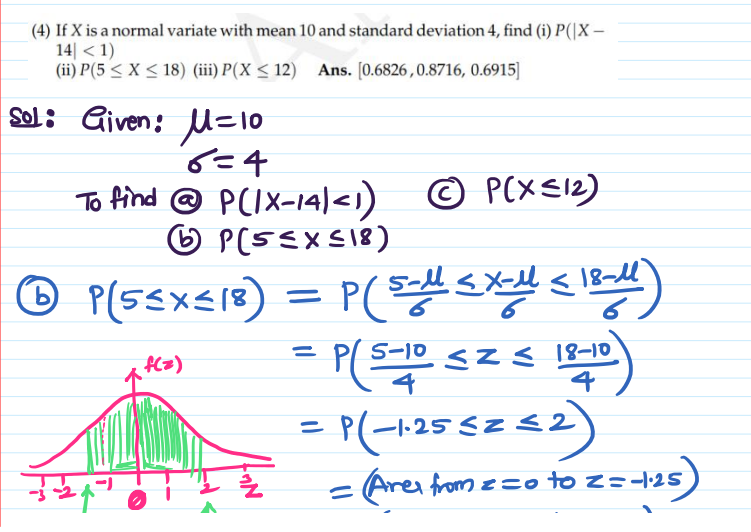 (4) If X is a normal variate with mean 10 and standard deviation 4, find (i) P(|X −
14| < 1)
(ii) P(5 ≤ X ≤ 18) (iii) P(X ≤ 12) Ans. [0.6826, 0.8716, 0.6915]
Sol: Given: μ=10
σ=4
To find ⓐ P(|X-14|<1) ⓒ P(X≤12)
ⓑ P(5≤X≤18)
ⓑ P(5≤X≤18) = P( (5-μ)/σ ≤ (X-μ)/σ ≤ (18-μ)/σ )
= P( (5-10)/4 ≤ Z ≤ (18-10)/4 )
= P(-1.25 ≤ Z ≤ 2)
= (Area from z=0 to z=-1.25)
f(z)
-3 -2 -1 0 1 2 3
Z